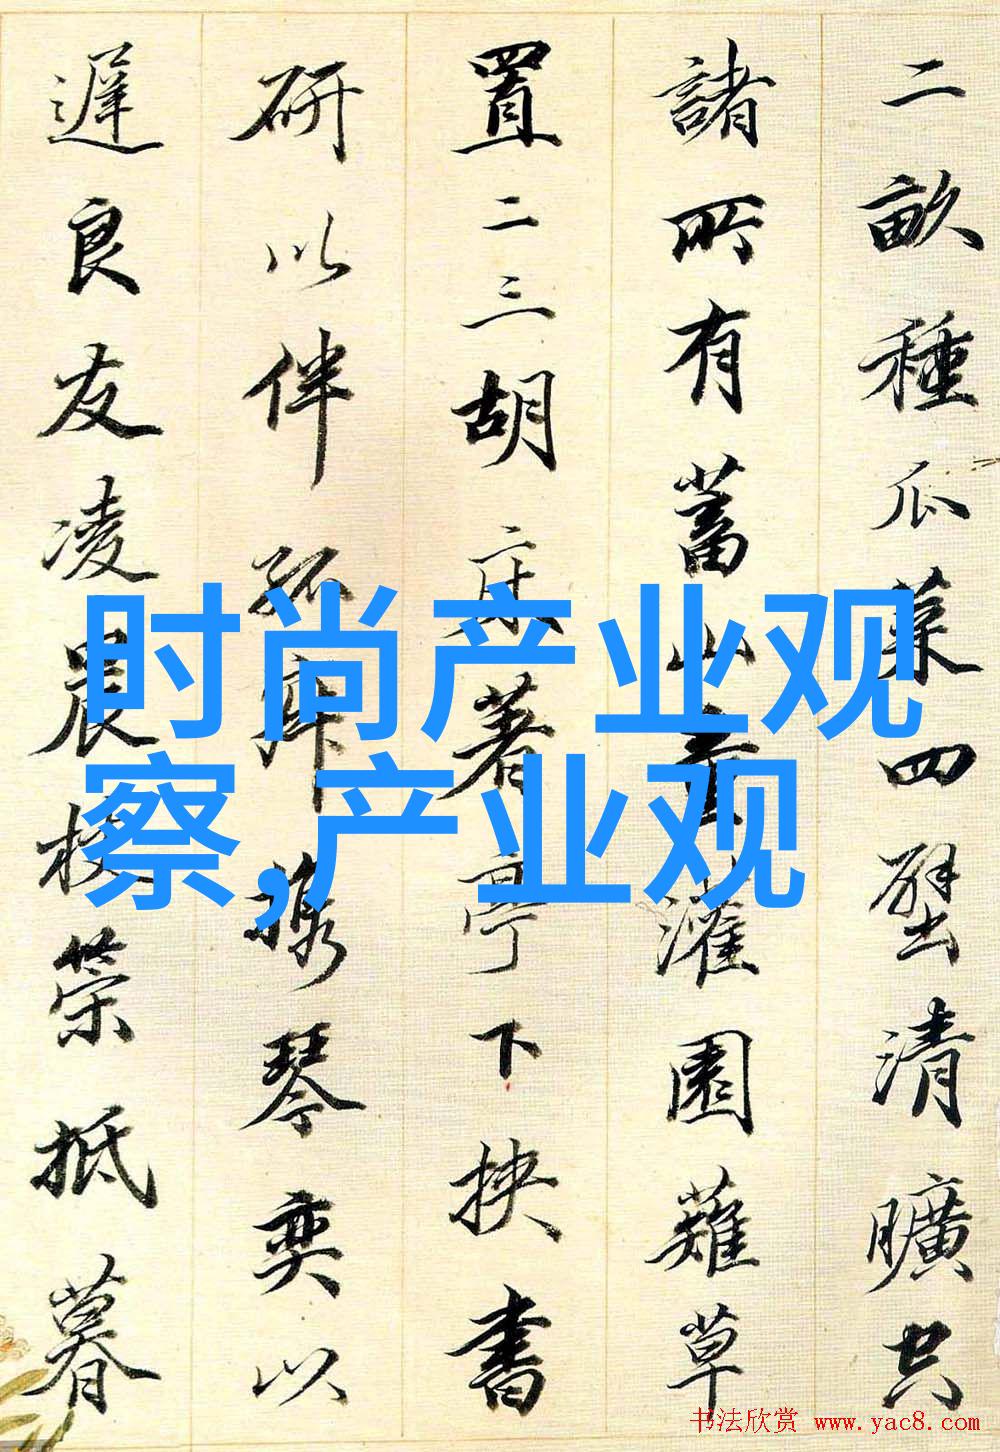 二畝種瓜菜四壁清曠共
諸所有蓄山童灌園薙草
置二三胡床著亭下挾書
研以伴孤寂携琴奕以
遲良友凌晨杖策抵暮
时尚产业观
察,产业观
书法欣赏 www.yac8.com